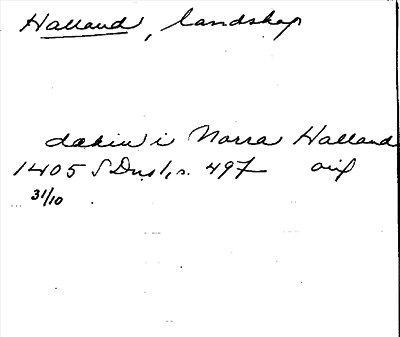 Halland, landskap
dakin i Norra Halland
1405 SDns1, s. 497 orig
31/10